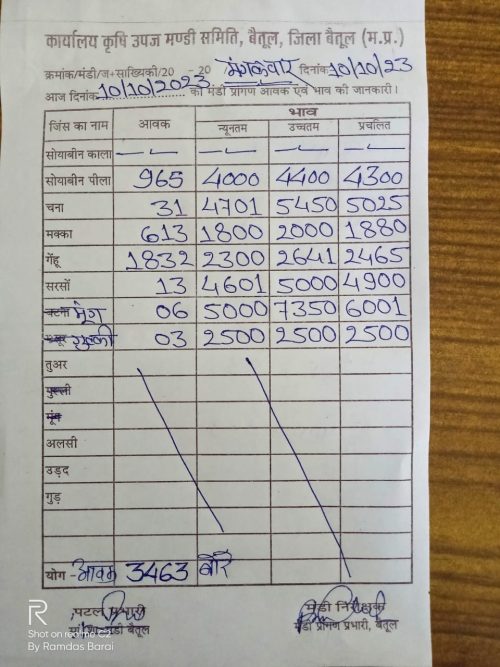 कार्यालय कृषि उपज मण्डी समिति, बैतूल, जिला बैतूल (म.प्र.)
क्रमांक/मंडी/ज+सांख्यिकी/20 - 20 मंगलवार दिनांक 10/10/23
आज दिनांक 10/10/2023 को मंडी प्रांगण आवक एवं भाव की जानकारी।
जिंस का नाम आवक भाव
न्यूनतम उच्चतम प्रचलित
सोयाबीन काला — — — —
सोयाबीन पीला 965 4000 4400 4300
चना 31 4701 5450 5025
मक्का 613 1800 2000 1880
गेंहू 1832 2300 2641 2465
सरसों 13 4601 5000 4900
मूंग 06 5000 7350 6001
03 2500 2500 2500
तुअर
मूंग
अलसी
उड़द
गुड़
योग - आवक 3463 बोरे
पटल प्रभारी मंडी निरीक्षक
मंडी बैतूल मंडी प्रांगण प्रभारी, बैतूल
R
Shot on realme C2
By Ramdas Barai